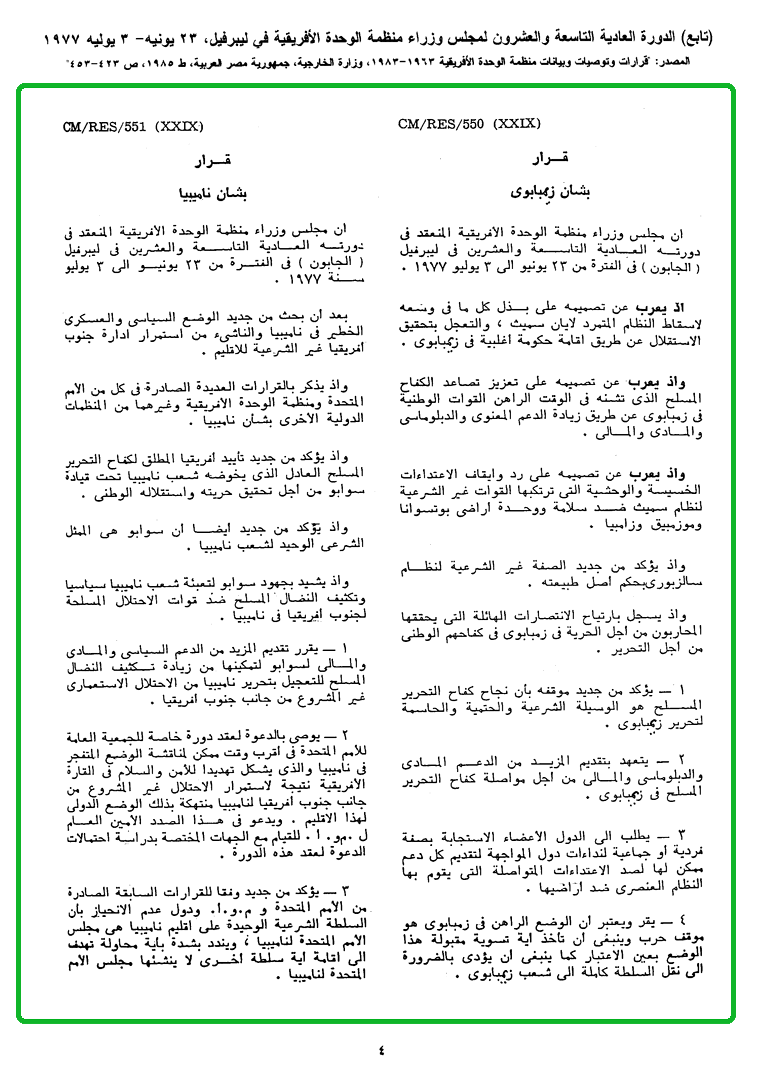 (تابع) الدورة العادية التاسعة والعشرون لمجلس وزراء منظمة الوحدة الأفريقية في ليبرفيل، ٢٣ يونيه- ٣ يوليه ١٩٧٧
المصدر: "قرارات وتوصيات وبيانات منظمة الوحدة الأفريقية ١٩٦٣-١٩٨٣، وزارة الخارجية، جمهورية مصر العربية، ط ١٩٨٥، ص ٤٢٣-٤٥٣"
CM/RES/550 (XXIX)
قــرار
بشأن زيمبابوى
ان مجلس وزراء منظمة الوحدة الافريقية المنعقد فى
دورتــه العــادية التاســعة والعشرين فى ليبرفيل
( الجابون ) فى الفترة من ٢٣ يونيو الى ٣ يوليو ١٩٧٧ .
اذ يعرب عن تصميمه على بــذل كل ما فى وسعه
لاسقاط النظام المتمرد لايان سميث ، والتعجل بتحقيق
الاستقلال عن طريق اقامة حكومة أغلبية فى زيمبابوى .
واذ يعرب عن تصميمه على تعزيز تصاعد الكفاح
المسلح الذى تشنه فى الوقت الراهن القوات الوطنية
فى زمبابوى عن طريق زيادة الدعم المعنوى والدبلوماسى
والمــادى والمــالى .
واذ يعرب عن تصميمه على رد وايقاف الاعتداءات
الخسيسة والوحشية التى ترتكبها القوات غير الشرعية
لنظام سميث ضــد سلامة ووحــدة اراضى بوتسوانا
وموزمبيق وزامبيا .
واذ يؤكد من جديد الصفة غير الشرعية لنظــام
سالزبورى بحكم أصل طبيعته .
واذ يسجل بارتياح الانتصارات الهائلة التى يحققها
المحاربون من أجل الحرية فى زمبابوى فى كفاحهم الوطنى
من أجل التحرير .
١ — يؤكد من جديد موقفه بأن نجاح كفاح التحرير
المســلح هو الوسيلة الشرعية والحتمية والحاسمة
لتحرير زيمبابوى .
٢ — يتعهد بتقديم المزيــد من الدعــم المــادى
والدبلوماسى والمــالى من أجل مواصلة كفاح التحرير
المسلح فى زيمبابوى .
٣ — يطلب الى الدول الاعضاء الاستجابة بصفة
فردية أو جماعية لنداءات دول المواجهة لتقديم كل دعم
ممكن لها لصد الاعتداءات المتواصلة التى يقوم بها
النظام العنصرى ضد اراضيها .
٤ — يقر ويعتبر ان الوضع الراهن فى زمبابوى هو
موقف حرب وينبغى أن تأخذ اية تسوية مقبولة هذا
الوضع بعين الاعتبار كما ينبغى ان يؤدى بالضرورة
الى نقل السلطة كاملة الى شعب زيمبابوى .
CM/RES/551 (XXIX)
قــرار
بشأن ناميبيا
ان مجلس وزراء منظمة الوحدة الافريقية المنعقد فى
دورتــه العــادية التاســعة والعشرين فى ليبرفيل
( الجابون ) فى الفترة من ٢٣ يونيــو الى ٣ يوليو
سنة ١٩٧٧ .
بعد أن بحث من جديد الوضع السياسى والعسكرى
الخطير فى ناميبيا والناشىء من استمرار ادارة جنوب
أفريقيا غير الشرعية للاقليم .
واذ يذكر بالقرارات العديدة الصادرة فى كل من الأمم
المتحدة ومنظمة الوحدة الافريقية وغيرهما من المنظمات
الدولية الاخرى بشأن ناميبيا .
واذ يؤكد من جديد تأييد أفريقيا المطلق لكفاح التحرير
المسلح العادل الذى يخوضه شعب ناميبيا تحت قيادة
سوابو من أجل تحقيق حريته واستقلاله الوطنى .
واذ يؤكد من جديد أيضــا ان سوابو هى الممثل
الشرعى الوحيد لشعب ناميبيا .
واذ يشيد بجهود سوابو لتعبئة شعب ناميبيا سياسيا
وتكثيف النضال المسلح ضد قوات الاحتلال المسلحة
لجنوب أفريقيا فى ناميبيا .
١ — يقرر تقديم المزيد من الدعم السياسى والمــادى
والمــالى لسوابو لتمكينها من زيادة تــكثيف النضال
المسلح للتعجيل بتحرير ناميبيا من الاحتلال الاستعمارى
غير المشروع من جانب جنوب أفريقيا .
٢ — يوصى بالدعوة لعقد دورة خاصة للجمعية العامة
للأمم المتحدة فى أقرب وقت ممكن لمناقشة الوضع المتفجر
فى ناميبيا والذى يشكل تهديدا للأمن والسلام فى القارة
الأفريقية نتيجة لاستمرار الاحتلال غير المشروع من
جانب جنوب أفريقيا لناميبيا منتهكة بذلك الوضع الدولى
لهذا الاقليم . ويدعو فى هــذا الصدد الأمين العــام
ل .م.و.أ . للقيام مع الجهات المختصة بدراسة احتمالات
الدعوة لعقد هذه الدورة .
٣ — يؤكد من جديد وفقا للقرارات السابقة الصادرة
من الأمم المتحدة و م.و.أ. ودول عدم الانحياز بأن
السلطة الشرعية الوحيدة على اقليم ناميبيا هى مجلس
الأمم المتحدة لناميبيا ، ويندد بشدة باية محاولة تهدف
الى اقامة أية سلطة أخــرى لا ينشئها مجلس الأمم
المتحدة لناميبيا .
٤